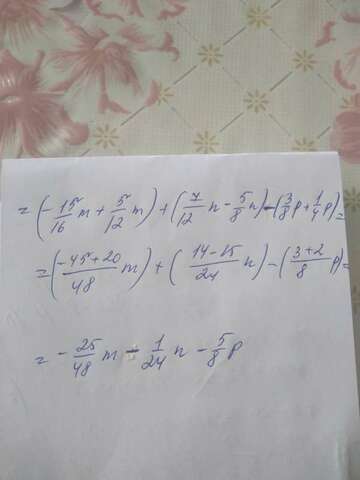 = (- 15/16 m + 5/12 m) + (7/12 n - 5/8 n) - (3/8 p + 1/4 p) =
= (-45+20/48 m) + (14-15/24 n) - (3+2/8 p) =
= - 25/48 m - 1/24 n - 5/8 p